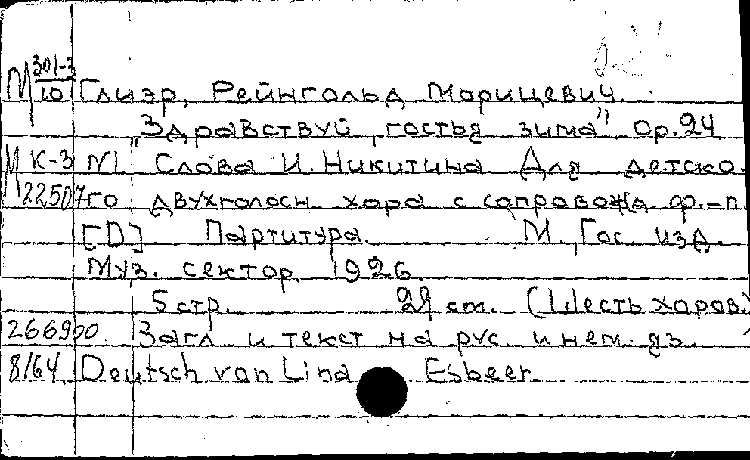 М 301-3
10 Глиэр, Рейнгольд Морицевич.
„Здравствуй, гостья зима" Op. 24
М К-3 N1 Слова И. Никитина Для детско-
22507 го двухголосн. хора с сопровожд. ф.-п.
[D] Партитура. М., Гос. изд.
Муз. сектор 1926.
5 стр. 29 см. (Шесть хоров)
266900 Загл. и текст на рус. и нем. яз.
8/64 Deutsch von Lina Esbeer